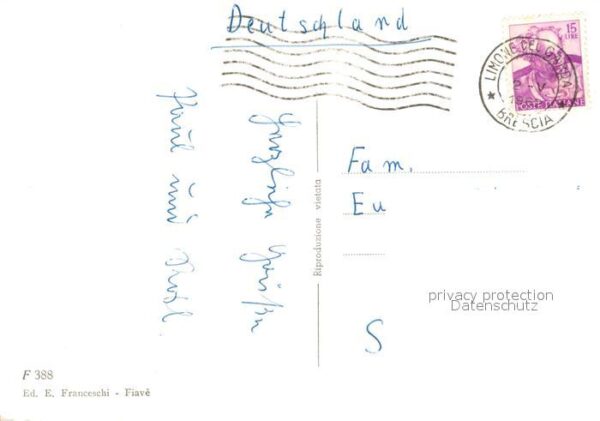 Deutschland
15
LIRE
LIMONE DEL GARDA
BRESCIA
POSTE ITALIANE
Herzliche Grüße
Riproduzione vietata
Fam.
Eu
S
privacy protection
Datenschutz
F 388
Ed. E. Franceschi - Fiavè